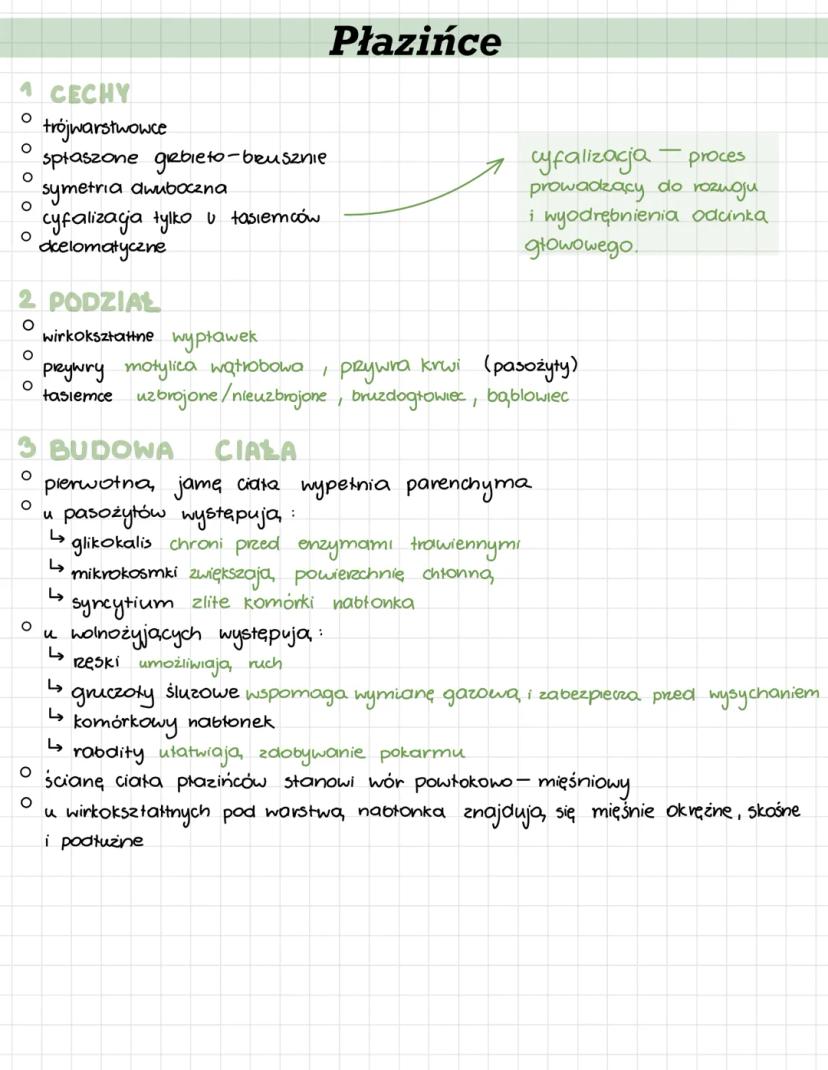 Płazińce
1 CECHY
trójwarstwowce
spłaszone grzbieto-brzusznie
symetria dwuboczna
cyfalizacja tylko u tasiemców
cyfalizacja — proces
prowadzący do rozwoju
i wyodrębnienia odcinka
głowowego.
acelomatyczne
2 PODZIAŁ
wirkokształtne wypławek
przywry motylica wątrobowa , przywra krwi (pasożyty)
tasiemce uzbrojone/nieuzbrojone , bruzdogłowiec , bąblowiec
3 BUDOWA CIAŁA
pierwotną jamę ciała wypełnia parenchyma
u pasożytów występują :
↳ glikokalis chroni przed enzymami trawiennymi
↳ mikrokosmki zwiększają powierzchnię chłonną
↳ syncytium zlite komórki nabłonka
u wolnożyjących występują :
↳ rzęski umożliwiają ruch
↳ gruczoły śluzowe wspomaga wymianę gazową i zabezpiecza przed wysychaniem
↳ komórkowy nabłonek
↳ rabdity ułatwiają zdobywanie pokarmu
ścianę ciała płazińców stanowi wór powłokowo - mięśniowy
u wirkokształtnych pod warstwą nabłonka znajdują się mięśnie okrężne, skośne
i podłużne